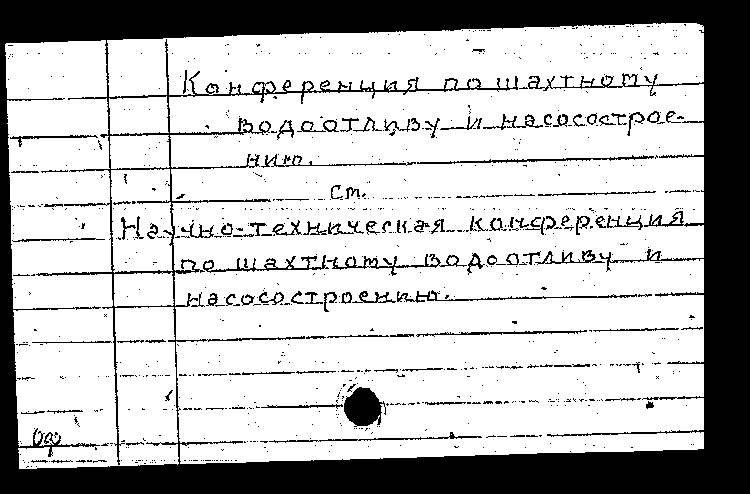 Конференция по шахтному
водоотливу и насосострое-
нию.
см.
Научно-техническая конференция
по шахтному водоотливу и
насосостроению.